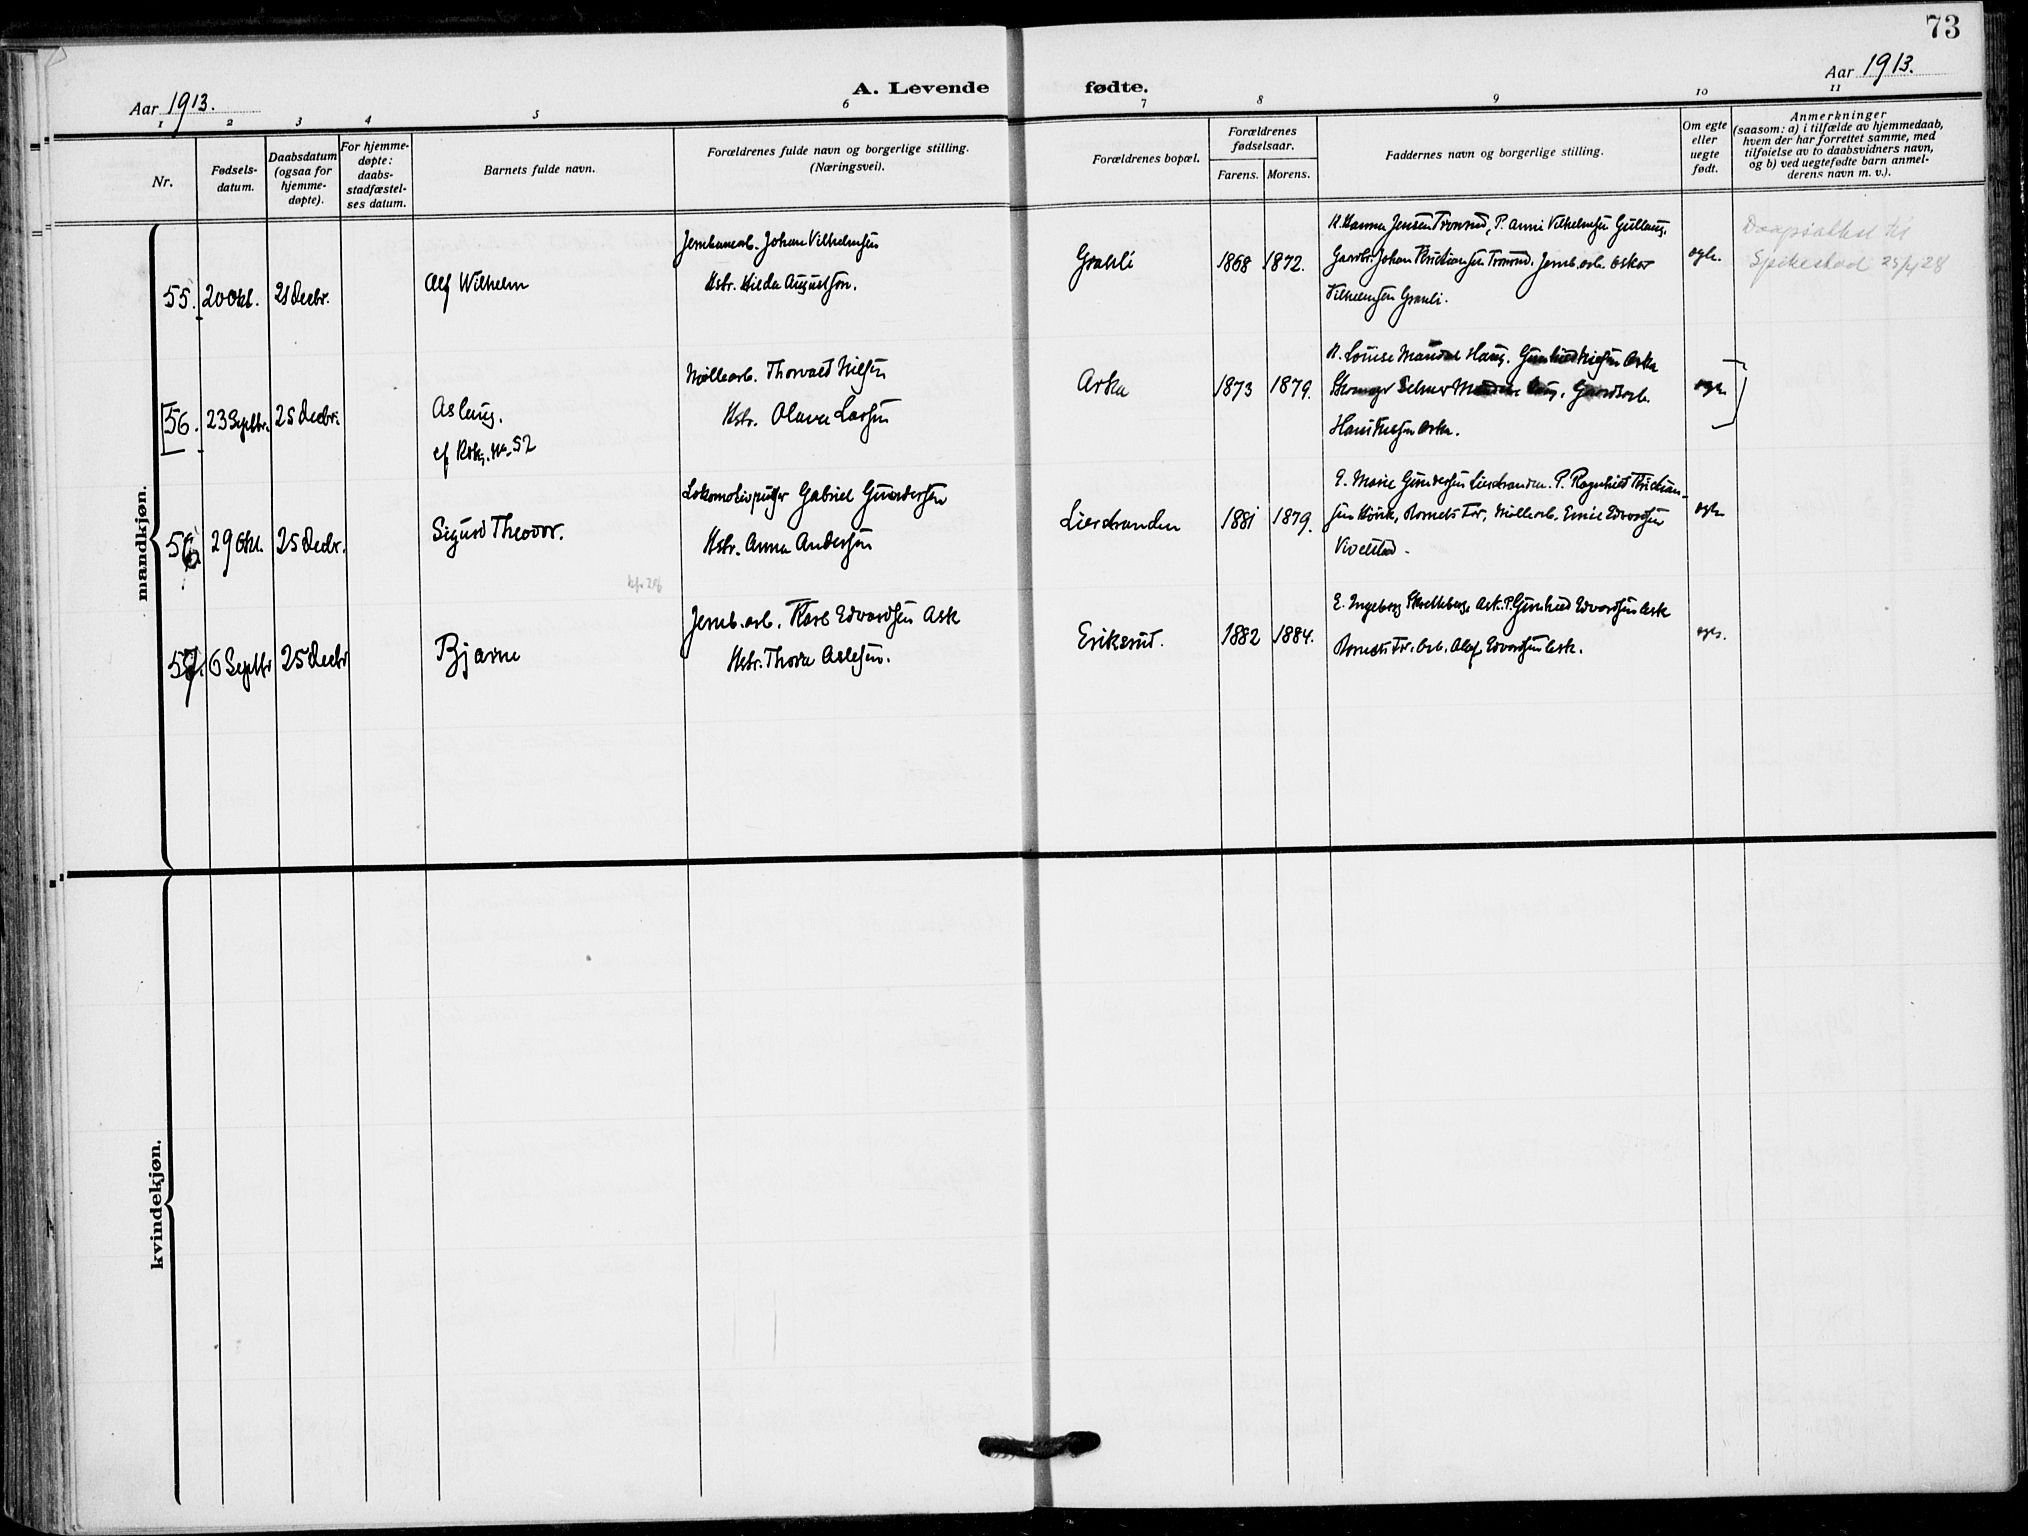 73
Aar 1913.
A. Levende fødte.
Aar 1913.
1 2 3 4 5 6 7 8 9 10 11
Nr.
Fødsels-
datum.
Daabsdatum
(ogsaa for
hjemme-
døpte).
For hjemme-
døpte:
daabs-
stadfæstel-
ses datum.
Barnets fulde navn.
Forældrenes fulde navn og borgerlige stilling.
(Næringsvei).
Forældrenes bopæl.
Forældrenes
fødselsaar.
Farens. Morens.
Faddernes navn og borgerlige stilling.
Om egte
eller
uegte
født.
Anmerkninger
(saasom: a) i tilfælde av hjemmedaab,
hvem der har forrettet samme, med
tilføielse av to daabsvidners navn,
og b) ved uegtefødte barn anmel-
derens navn m. v.).
mandkjøn.
55. 20 Okt. 21 Decbr.
Alf Wilhelm
Jernbanearb. Johan Vilhelmsen
Hstr. Hilda Augustson.
Graali
1868 1872.
K. Hanna Jensen Tromrud, P. Anni Vilhelmsen Gullaug.
Gaardbr. Johan Kristiansen Tromrud. Jernb.arb. Oskar
Vilhelmsen Graali.
egte.
Daapsattest til
Spikestad 25/4 28
[56. 23 Septbr. 25 Decbr.
Aslaug.
cf Nr. 52
Møllearb. Thorvald Nilsen
Hstr. Olava Larsen
Aska
1873 1879.
K. Louise Haug. Gunhild Nielsen Aska
Selmer Haug. Gaardsarb.
Hans Nielsen Aska.
egte ]
56 29 Okt. 25 Decbr.
Sigurd Theodor.
Lokomotivpudser Gabriel Gundersen
Hstr. Anna Andersen
Lierstranden
1881 1879.
E. Marie Gundersen Lierstranden. P. Ragnhild Kristian-
sen Barnets Far, Møllearb. Emil Edvardsen
Vivelstad.
egte
57. 6 Septbr 25 Decbr
Bjarne
Jernb.arb. Karl Edvardsen Ask
Hstr. Thora Aslesen.
Eriksrud.
1882 1884.
E. Ingeborg Skretteberg, Ask. P. Gunhild Edvardsen Ask
Barnets Far. Arb. Olaf Edvardsen Ask.
egte.
kvindekjøn.